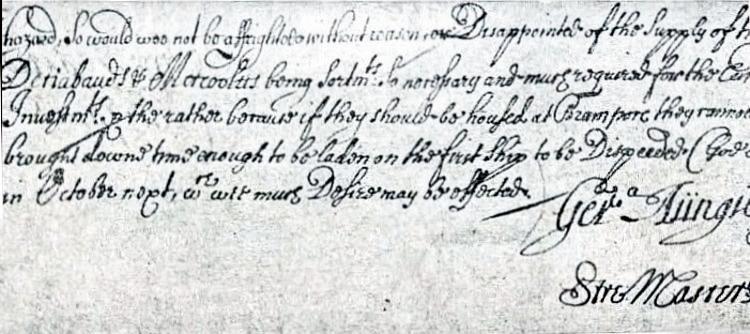 hazard, so would wee not be affrighted without reason, or Disappointed of the Supply of
Deriabauds & Mercoolees being sortmts. so necessary and much required for the
Investmt. the rather because if they should be housed at they cannot
brought downe time enough to be laden on the first Ship to be Dispeeded
in October next, wch. wee much Desire may be effected.
Stre Master